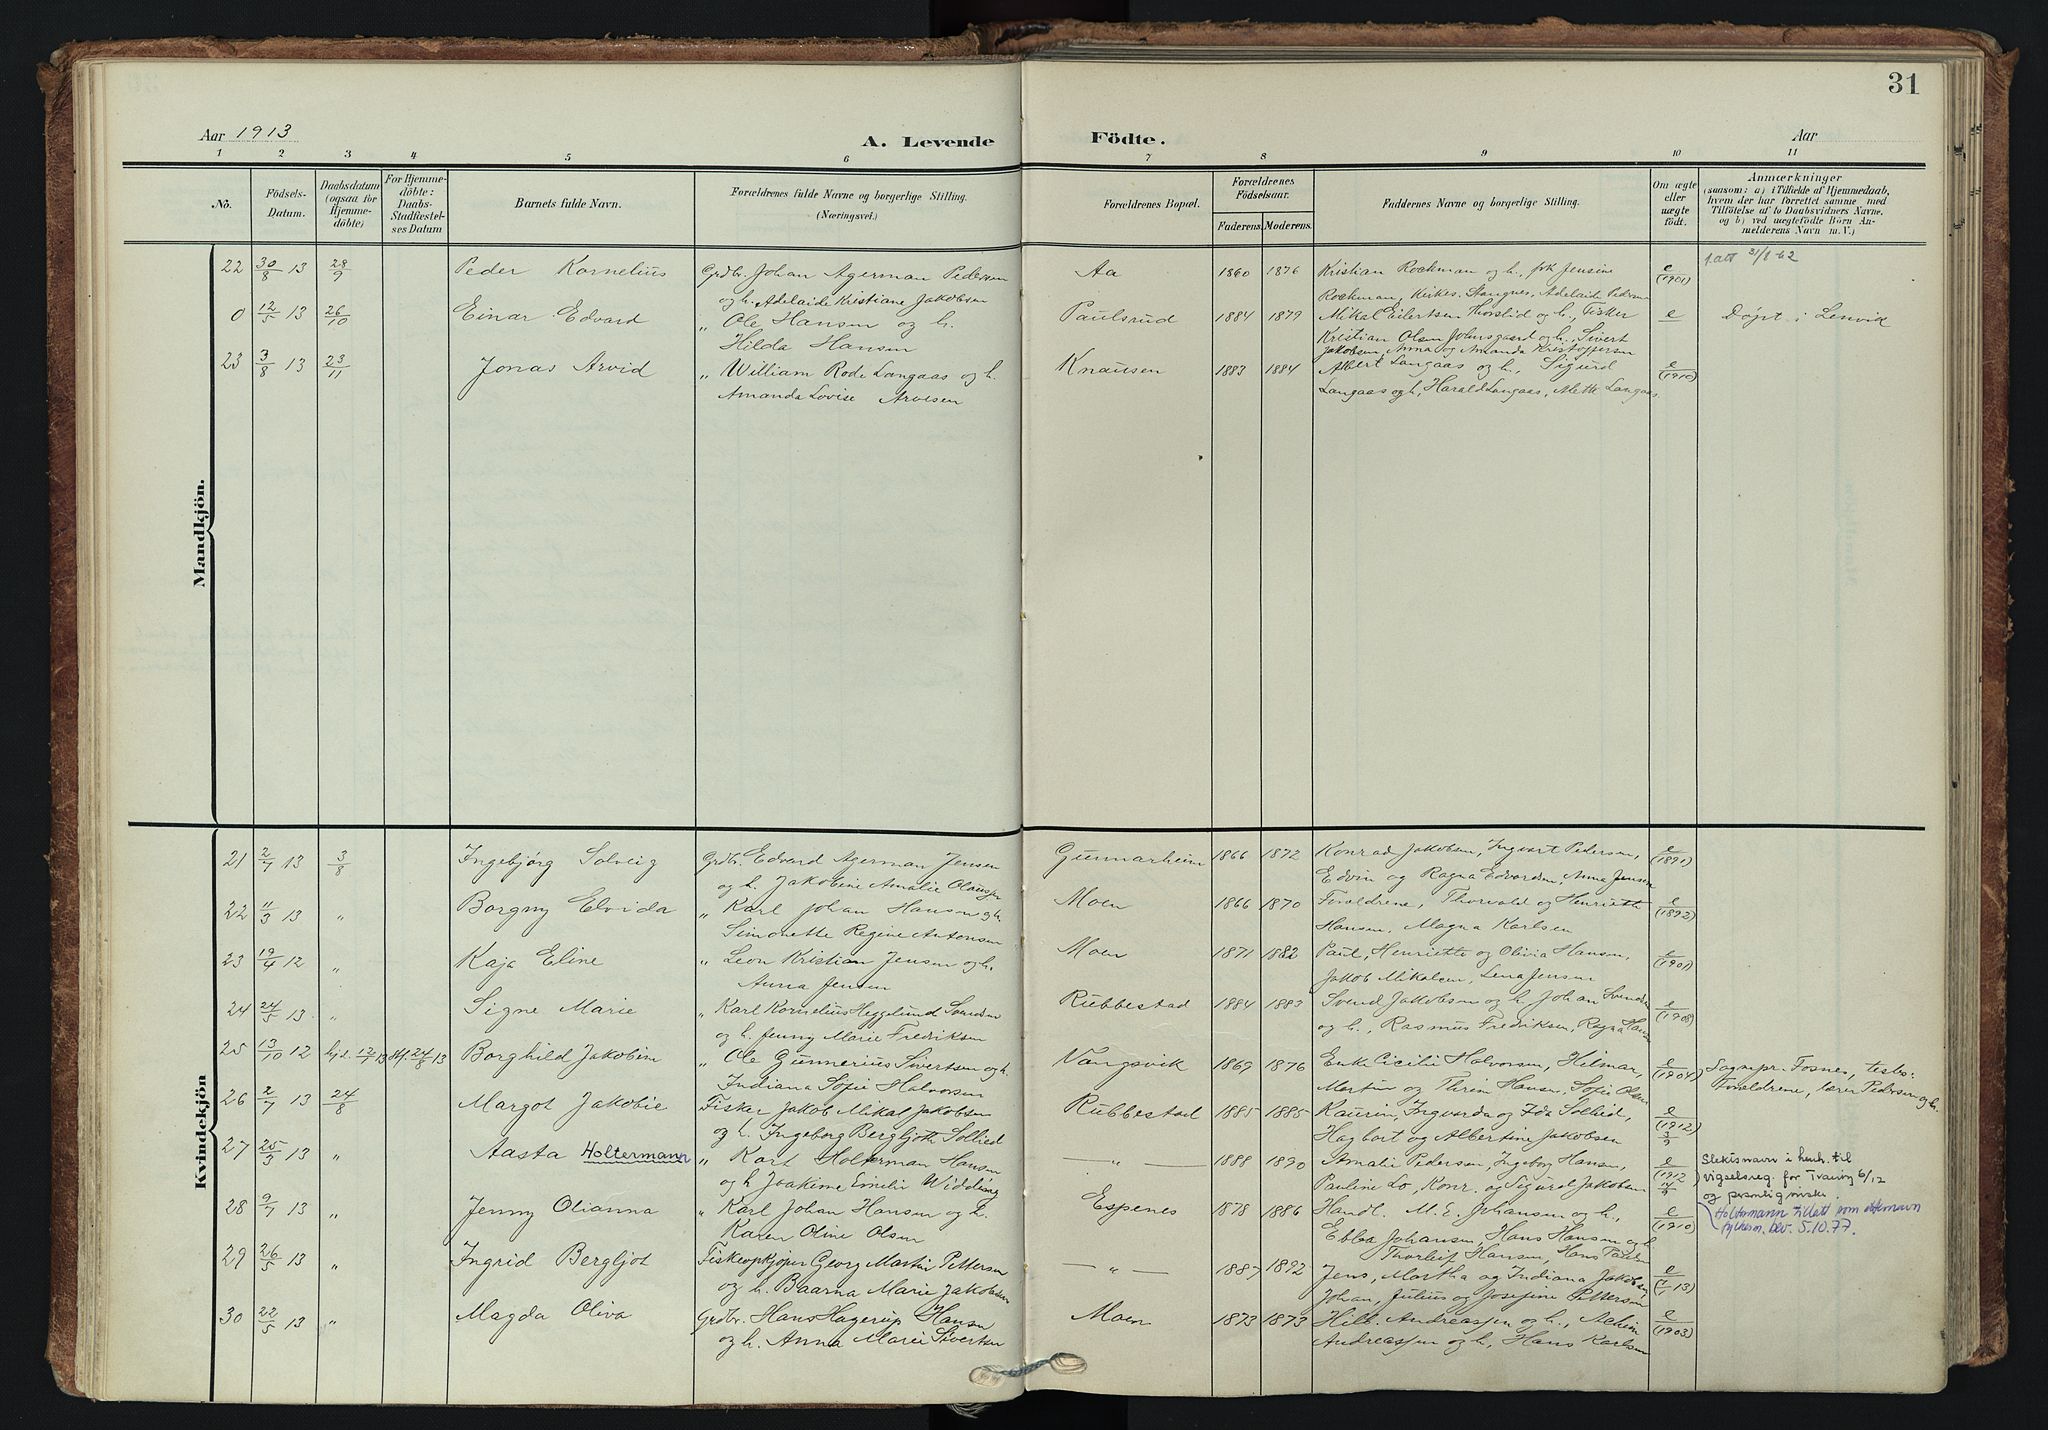 31
Aar 1913
A. Levende
Födte.
Aar
1 2 3 4 5 6 7 8 9 10 11
No.
Födsels-Datum.
Daabsdatum (ogsaa for Hjemme-döbte)
For Hjemme-döbte: Daabs-Stadfæstel-ses Datum
Barnets fulde Navn.
Forældrenes fulde Navne og borgerlige Stilling. (Næringsvei.)
Forældrenes Bopæl.
Forældrenes Födselsaar.
Faderens. Moderens.
Faddernes Navne og borgerlige Stilling.
Om ægte eller uægte födt.
Anmærkninger
(saasom: a) i Tilfælde af Hjemmedaab,
hvem der har forrettet samme, med
Tilföielse af to Daabsvidners Navne,
og b) ved uægtefödte Börn An-
melderens Navn m. V.)
Mandkjön.
22 30/8 13 28/9 Peder Kornelius Grdbr. Johan Agerman Pedersen Aa 1860 1876 Kristian Rochman og h., frk Jensine e (1901) f.att 31/8-62
og h. Adelaide Kristiane Jakobsen Rochman, Kirkes. Stangnes, Adelaide Pedersen
0 12/5 13 26/10 Einar Edvard " Ole Hansen og h. Paulsrud 1884 1879 Mikal Eilertsen Thorslid og h., Fisker e Døpt i Lenvik
Hilda Hansen Kristian Olsen Johnsgaard og h., Sivert
Jakobsen, Anna og Amanda Kristoffersen
23 3/8 13 23/11 Jonas Arvid " William Rode Langaas og h. Knausen 1883 1884 Albert Langaas og h., Sigurd e (1910)
Amanda Lovise Arvesen Langaas og h., Harald Langaas, Mette Langaas.
Kvindekjön
21 2/7 13 3/8 Ingebjørg Solveig Grdbr. Edvard Agerman Jensen Gunnarheim 1866 1872 Konrad Jakobsen, Ingvart Pedersen, e (1891)
og h. Jakobine Amalie Olaussen Edvin og Ragna Edvardsen, Anna Jensen
22 11/3 13 " Borgny Elvida " Karl Johan Hansen og h. Moen 1866 1870 Forældrene, Thorvald og Henriette e (1892)
Simonette Regine Antonsen Hansen, Magna Karlsen
23 19/4 12 " Kaja Eline " Leon Kristian Jensen og h. Moen 1871 1882 Paul, Henriette og Olivia Hansen, e (1901)
Anna Jensen Jakob Mikalsen, Lena Jensen
24 24/5 13 " Signe Marie " Karl Kornelius Heggelund Svendsen Rubbestad 1884 1883 Svend Jakobsen og h. Johan Svendsen e (1908)
og h. Jenny Marie Fredriksen og h., Rasmus Fredriksen, Ragna Hansen
25 13/10 12 hj.d. 13/7 13 stf. 24/8 13 Borghild Jakobine " Ole Gunnerius Sivertsen og h. Vangsvik 1869 1876 Enke Cicilie Halvorsen, Hilmar, e (1904) Sognepr. Fosnes, testes:
Indiana Sofie Halvorsen Martin og Thrine Hansen, Sofie Olsen Foreldrene, lærer Pedersen og h.
26 2/7 13 24/8 Margot Jakobie Fisker Jakob Mikal Jakobsen Rubbestad 1885 1885 Kaurin, Ingvarda og Ida Sollied, e (1912)
og h. Ingeborg Bergljoth Sollied Hagbart og Albertine Jakobsen
27 25/3 13 " Aasta Holtermann " Karl Holterman Hansen — " — 1888 1890 Amalie Pedersen, Ingeborg Hansen, e (1912 Slektsnavn i henh. til
og h Joakime Emelie Widding Pauline Lo, Konr. og Sigurd Jakobsen vigselsreg. for Tranøy 6/12
og personlig ønske.
28 9/7 13 " Jenny Olianna " Karl Johan Hansen og h. Espenes 1878 1886 Handl. M. E. Johansen og h., e (1910) Holtermann tillatt som etternavn
Karen Oline Olsen Ebba Johansen, Hans Hansen og h. fylkesm. bev. 5.10.77.
Thorleif Hansen, Hans Paulsen
29 26/5 13 " Ingrid Bergljot Fiskeopkjøper Georg Martin Pettersen — " — 1887 1892 Jens, Martha og Indiana Jakobsen, e
og h. Baarna Marie Jakobsen Johan, Julius og Josefine Pettersen
30 22/5 13 " Magda Oliva Grdbr. Hans Hagerup Hansen Moen 1873 1873 Hilb. Andreassen og h., Achim e (1903)
og h. Anna Marie Sivertsen Andreassen og h., Hans Karlsen